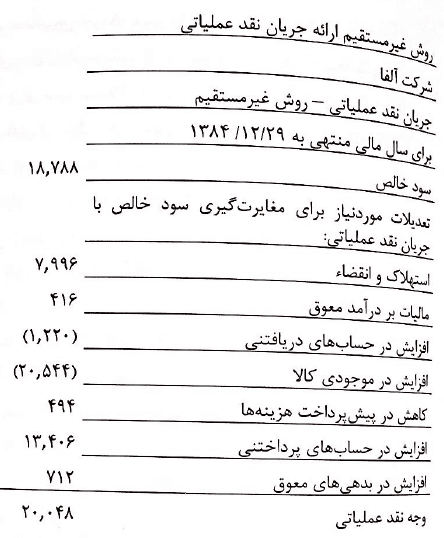 روش غیرمستقیم ارائه جریان نقد عملیاتی
شرکت آلفا
جریان نقد عملیاتی – روش غیرمستقیم
برای سال مالی منتهی به ۱۳۸۴/۱۲/۲۹
سود خالص ۱۸,۷۸۸
تعدیلات موردنیاز برای مغایرت‌گیری سود خالص با
جریان نقد عملیاتی:
استهلاک و انقضاء ۷,۹۹۶
مالیات بر درآمد معوق ۴۱۶
افزایش در حساب‌های دریافتنی (۱,۲۲۰)
افزایش در موجودی کالا (۲۰,۵۴۴)
کاهش در پیش‌پرداخت هزینه‌ها ۴۹۴
افزایش در حساب‌های پرداختنی ۱۳,۴۰۶
افزایش در بدهی‌های معوق ۷۱۲
وجه نقد عملیاتی ۲۰,۰۴۸